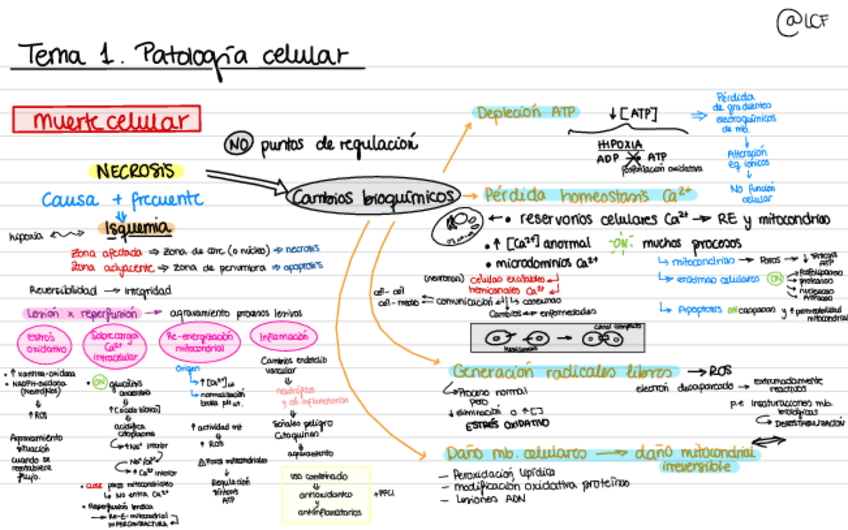 @LCF
Tema 1. Patología celular
muerte celular
NO puntos de regulación
NECROSIS
Causa + frecuente
Isquemia
hipoxia
Zona afectada ⇒ zona de core (o núcleo) ⇒ necrosis
Zona adyacente ⇒ zona de penumbra ⇒ apoptosis
Reversibilidad → integridad
Lesión x reperfusión → agravamiento procesos lesivos
Estrés
oxidativo
• ↑ xantina-oxidasa
• NADPH-oxidasa
(neutrófilos)
↑ ROS
Agravamiento
situación
cuando se
reestablece
flujo.
Sobrecarga
Ca2+
intracelular
• ON glucólisis
anaerobia
↑ [ácido láctico]
acidifica
citoplasma
↑ Na+ interior
Na+/Ca2+
↑ Ca2+ interior
• CLOSE poros mitocondriales
↳ No entra Ca2+
• Reperfusión brusca
→ Re-E-mitocondrial
HIPERCONTRACTURA
Re-energización
mitocondrial
Origen
↑ [Ca2+]
normalización
↑ actividad mit
↑ ROS
Δ Poros mitocondriales
Regulación
síntesis
ATP
Inflamación
Cambios endotelio
vascular
neutrófilos
y cél. inflamatorias
Señales peligro
Citoquinas
agravamiento
uso combinado
antioxidantes
y
antiinflamatorios
+PPCI
Cambios bioquímicos
Depleción ATP
↓ [ATP]
HIPOXIA
ADP ATP
fosforilación oxidativa
Pérdida
de gradientes
electroquímicos
de mb.
Alteración
eq. iónicos
No función
celular
Pérdida homeostasis Ca2+
• reservorios celulares Ca2+ → RE y mitocondrias
• ↑ [Ca2+] anormal ON: muchos procesos
• microdominios Ca2+
↳ mitocondrias → Poros → ↓ síntesis
ATP
↳ enzimas celulares ON
fosfolipasas
proteasas
nucleasas
ATPasas
↳ Apoptosis ON caspasas y ↑ permeabilidad
mitocondrial
(neuronas) células excitables
hemicanales Ca2+
cél-cél
cél-medio comunicación conexinas
Cambios enfermedades
hemicanales
canal completo
Generación radicales libres → ROS
Proceso normal
pero
↓ eliminación o ↑ []
ESTRÉS OXIDATIVO
electrón desapareado → extremadamente
reactivos
p.e insaturaciones mb.
biológicas
DESESTABILIZACIÓN
Daño mb. celulares → daño mitocondrial
irreversible
— Peroxidación lipídica
— modificación oxidativa proteínas
— Lesiones ADN